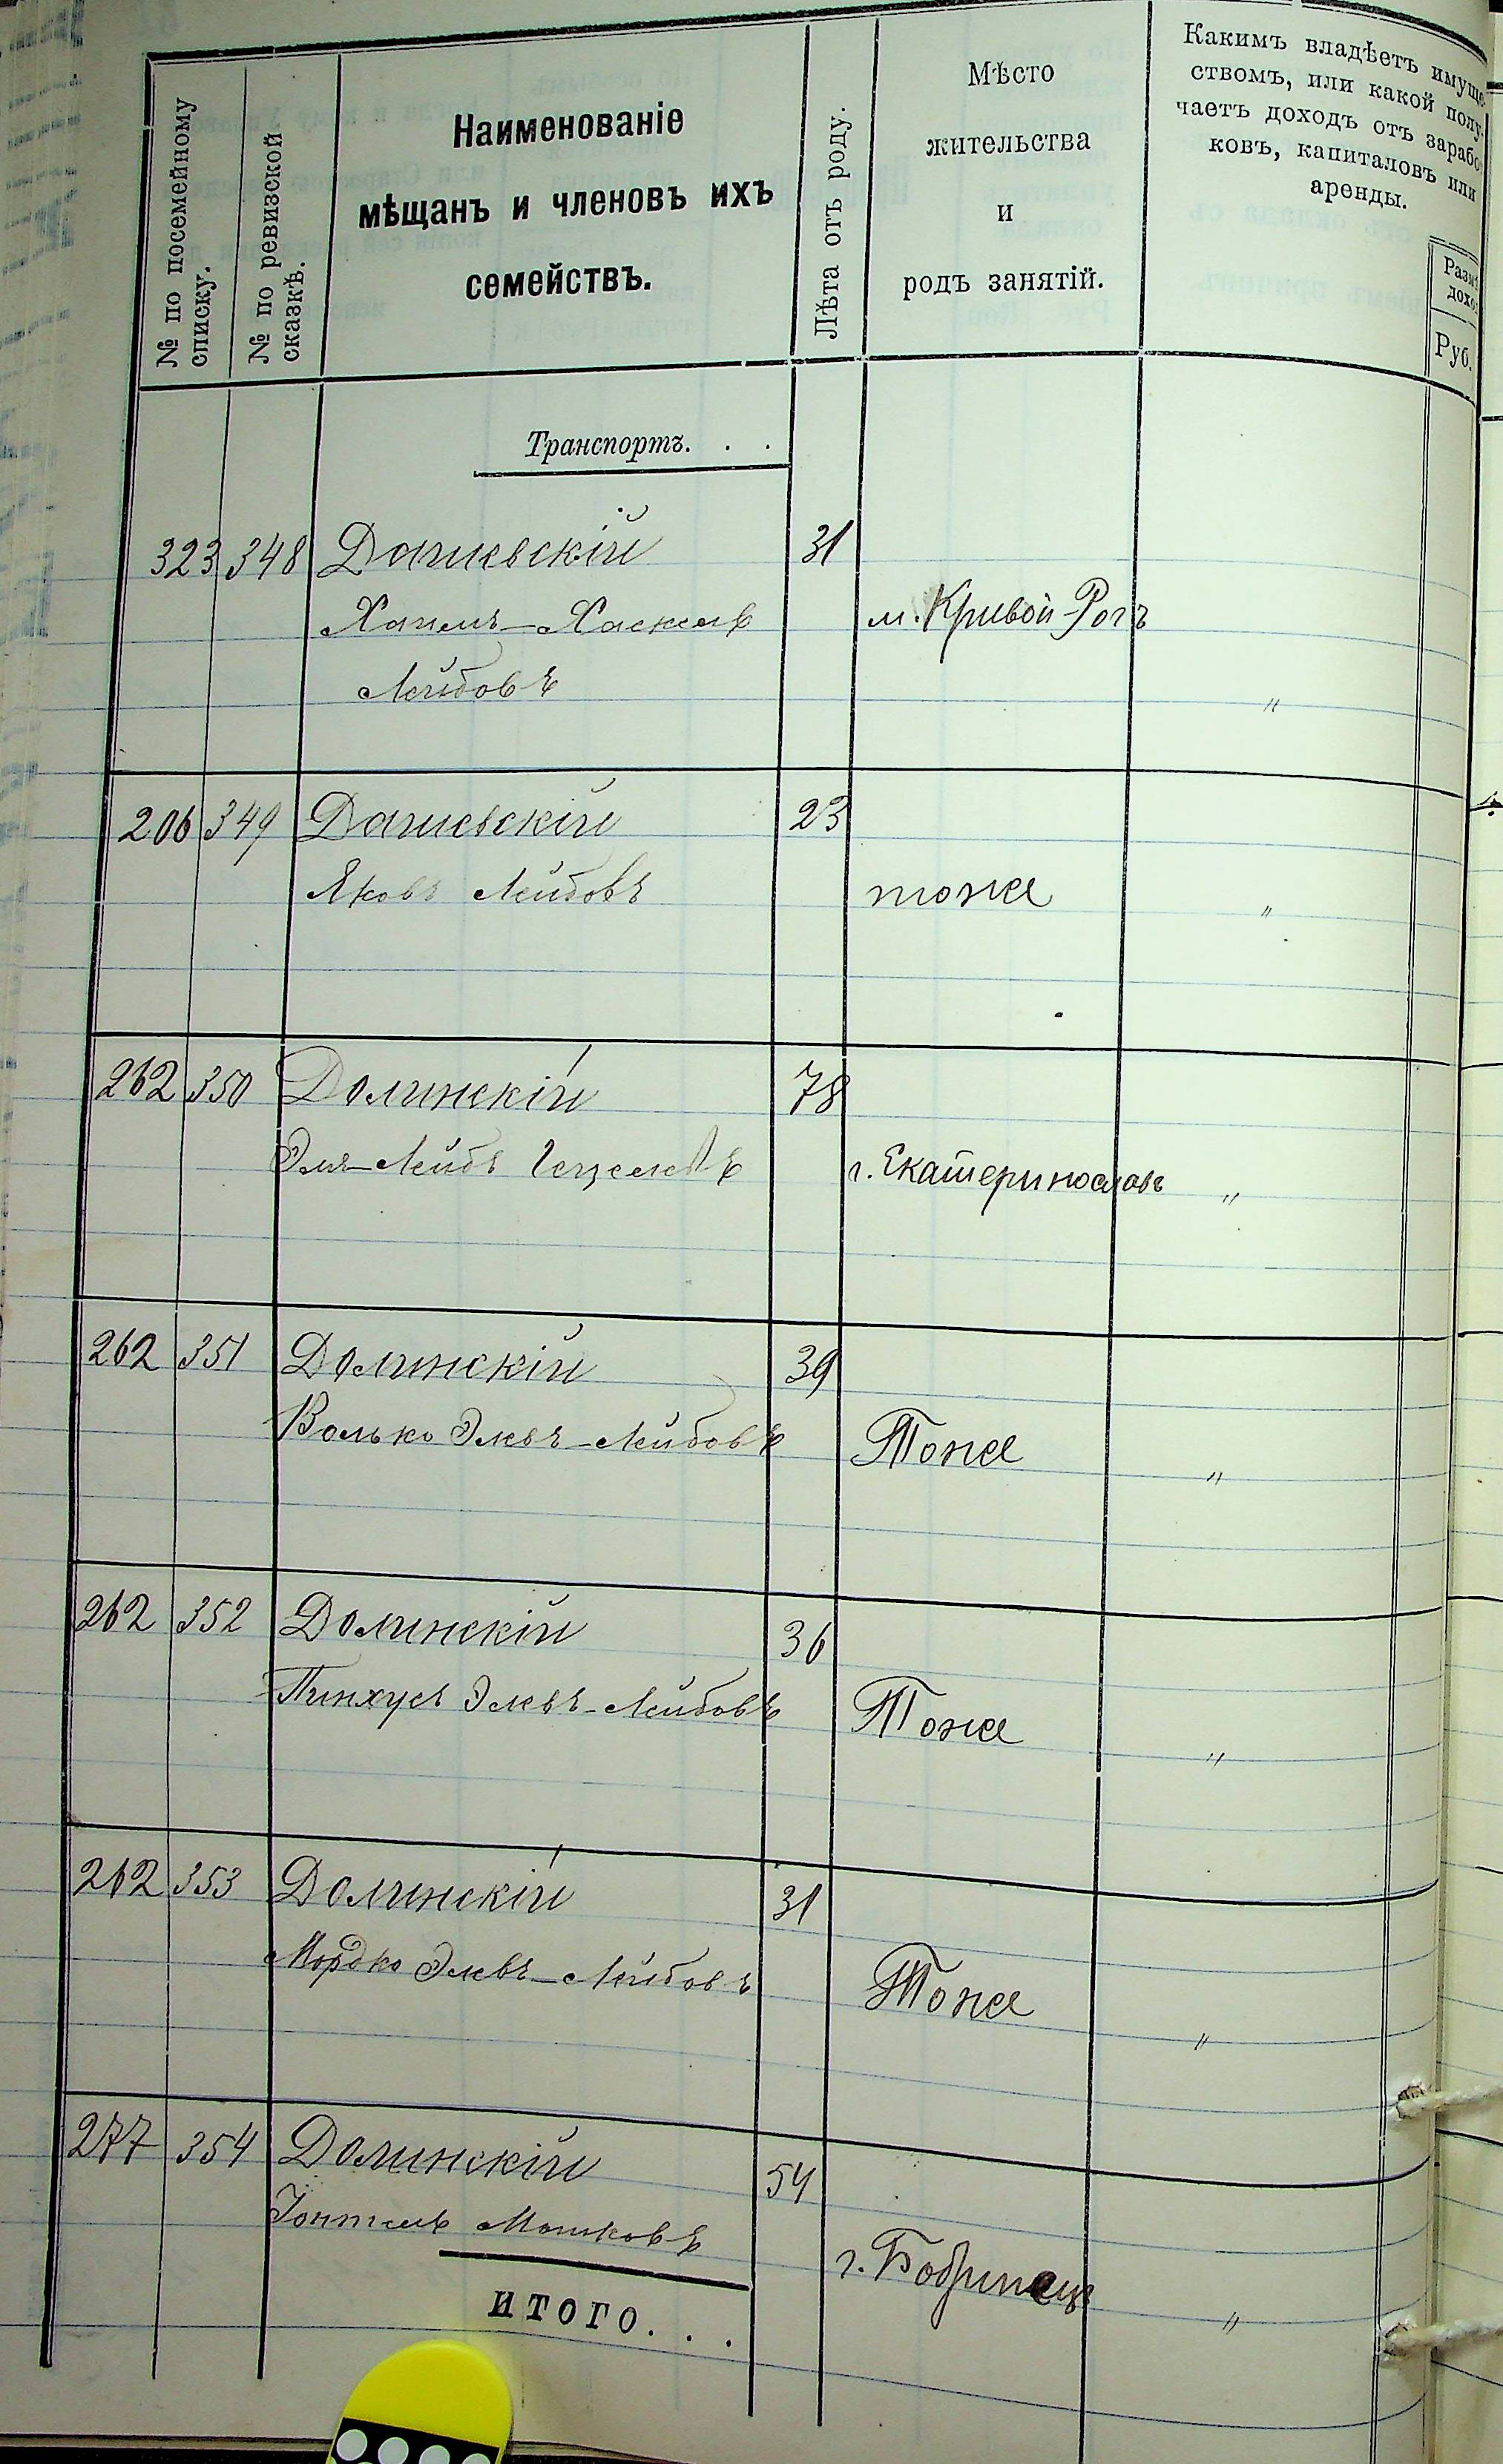 № по посемейному
списку.
№ по ревизской
сказкѣ.
Наименованіе
мѣщанъ и членовъ ихъ
семействъ.
Лѣта отъ роду.
Мѣсто
жительства
и
родъ занятій.
Какимъ владѣетъ имуще-
ствомъ, или какой полу-
чаетъ доходъ отъ зарабо
ковъ, капиталовъ или
аренды.
Разм
дохо
Руб.
Транспортъ. . .
323 348 Дашевскій 31
м. Кривой-Рогъ
Лейбовъ "
206 349 Дашевскій 23
Яковъ Лейбовъ тоже "
262 350 Долинскій 78
Эля-Лейбъ г. Екатеринославъ "
262 351 Долинскій 39
Волько Элевъ-Лейбовъ Тоже "
262 352 Долинскій 36
Пинхусъ Элевъ-Лейбовъ Тоже "
262 353 Долинскій 31
Мордко Элевъ-Лейбовъ Тоже "
277 354 Долинскій 54
Мошковъ г. Бобринецъ "
итого. . .